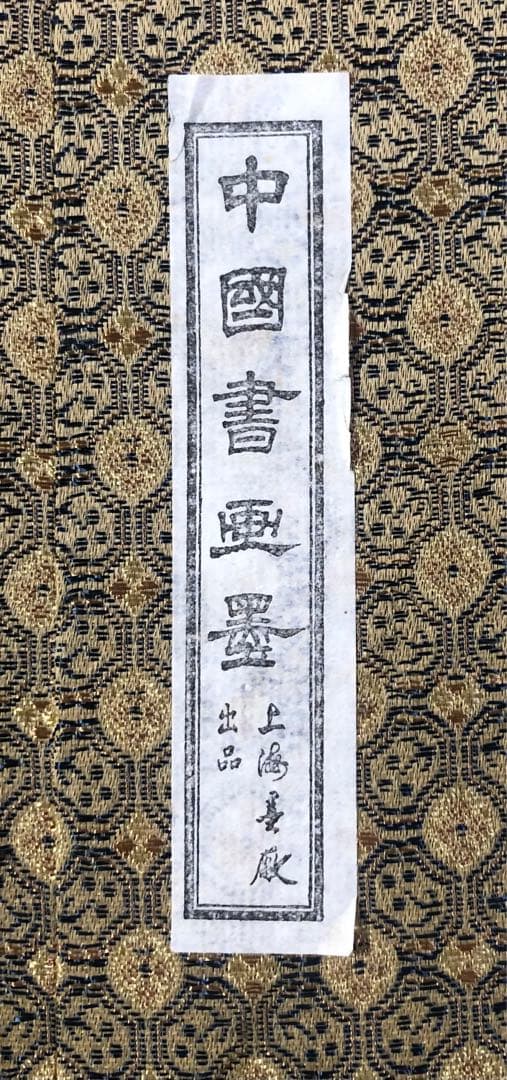 中國書画墨
上海墨厰
出品